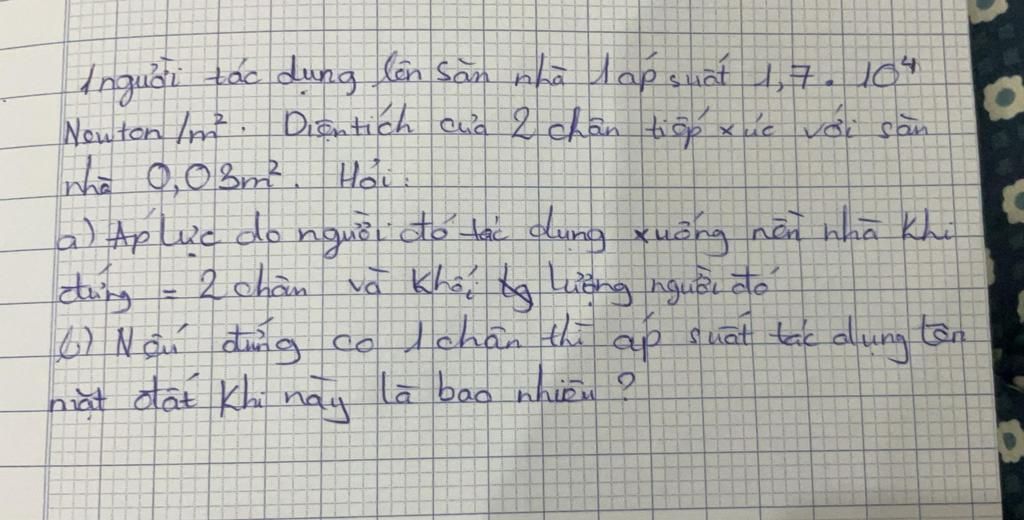 1 người tác dụng lên sàn nhà 1 áp suất 1,7. 10⁴
Newton /m². Diện tích của 2 chân tiếp xúc với sàn
nhà 0,03m². Hỏi:
a) Áp lực do người đó tác dụng xuống nền nhà khi
đứng = 2 chân và khối lượng người đó
b) Nếu đứng co 1 chân thì áp suất tác dụng lên
mặt đất khi này là bao nhiêu ?